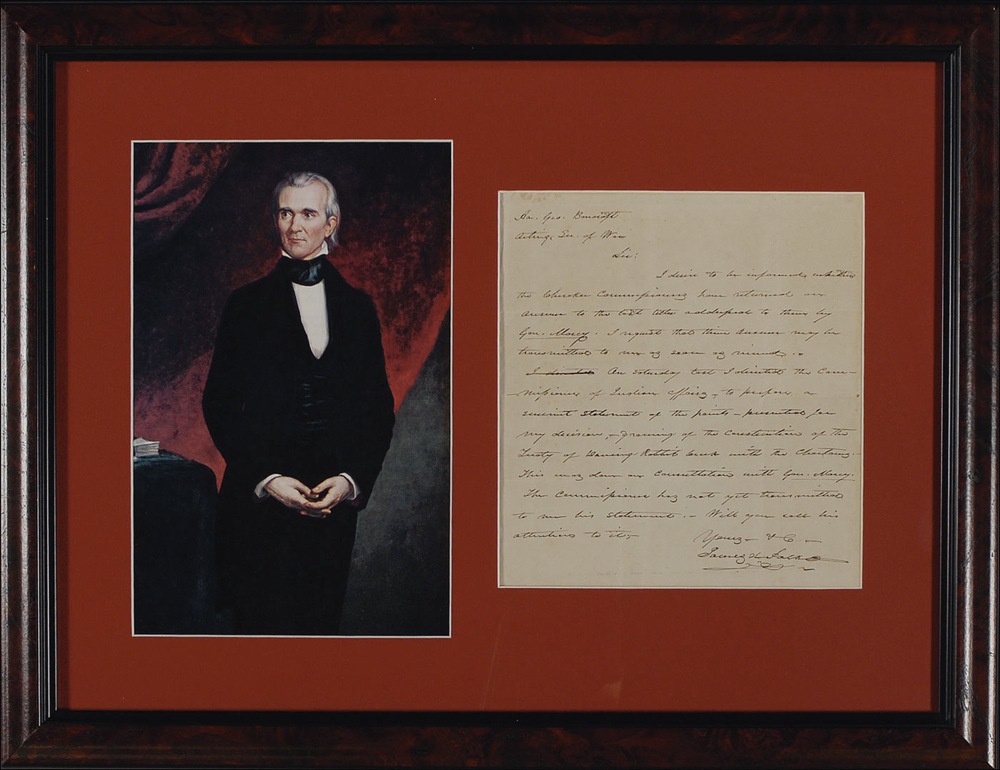 Hon. Geo. Bancroft
Acting Sec. of War
Sir:
I desire to be informed, whether
the Cherokee Commissioners have returned an
answer to the last letter addressed to them by
Gov. Marcy. I request that their answer may be
transmitted to me as soon as
I On Saturday last I directed the Com-
missioner of Indian Affairs, to prepare a
succinct statement of the points – presented for
my decision, – growing of the Construction of the
Treaty of Dancing Rabbit Creek with the Choctaws.
This was done on Consultation with Gov. Marcy.
The Commissioner has not yet transmitted
to me his statement. – Will you call his
attention to it. –
Yours – &C. –
James K. Polk